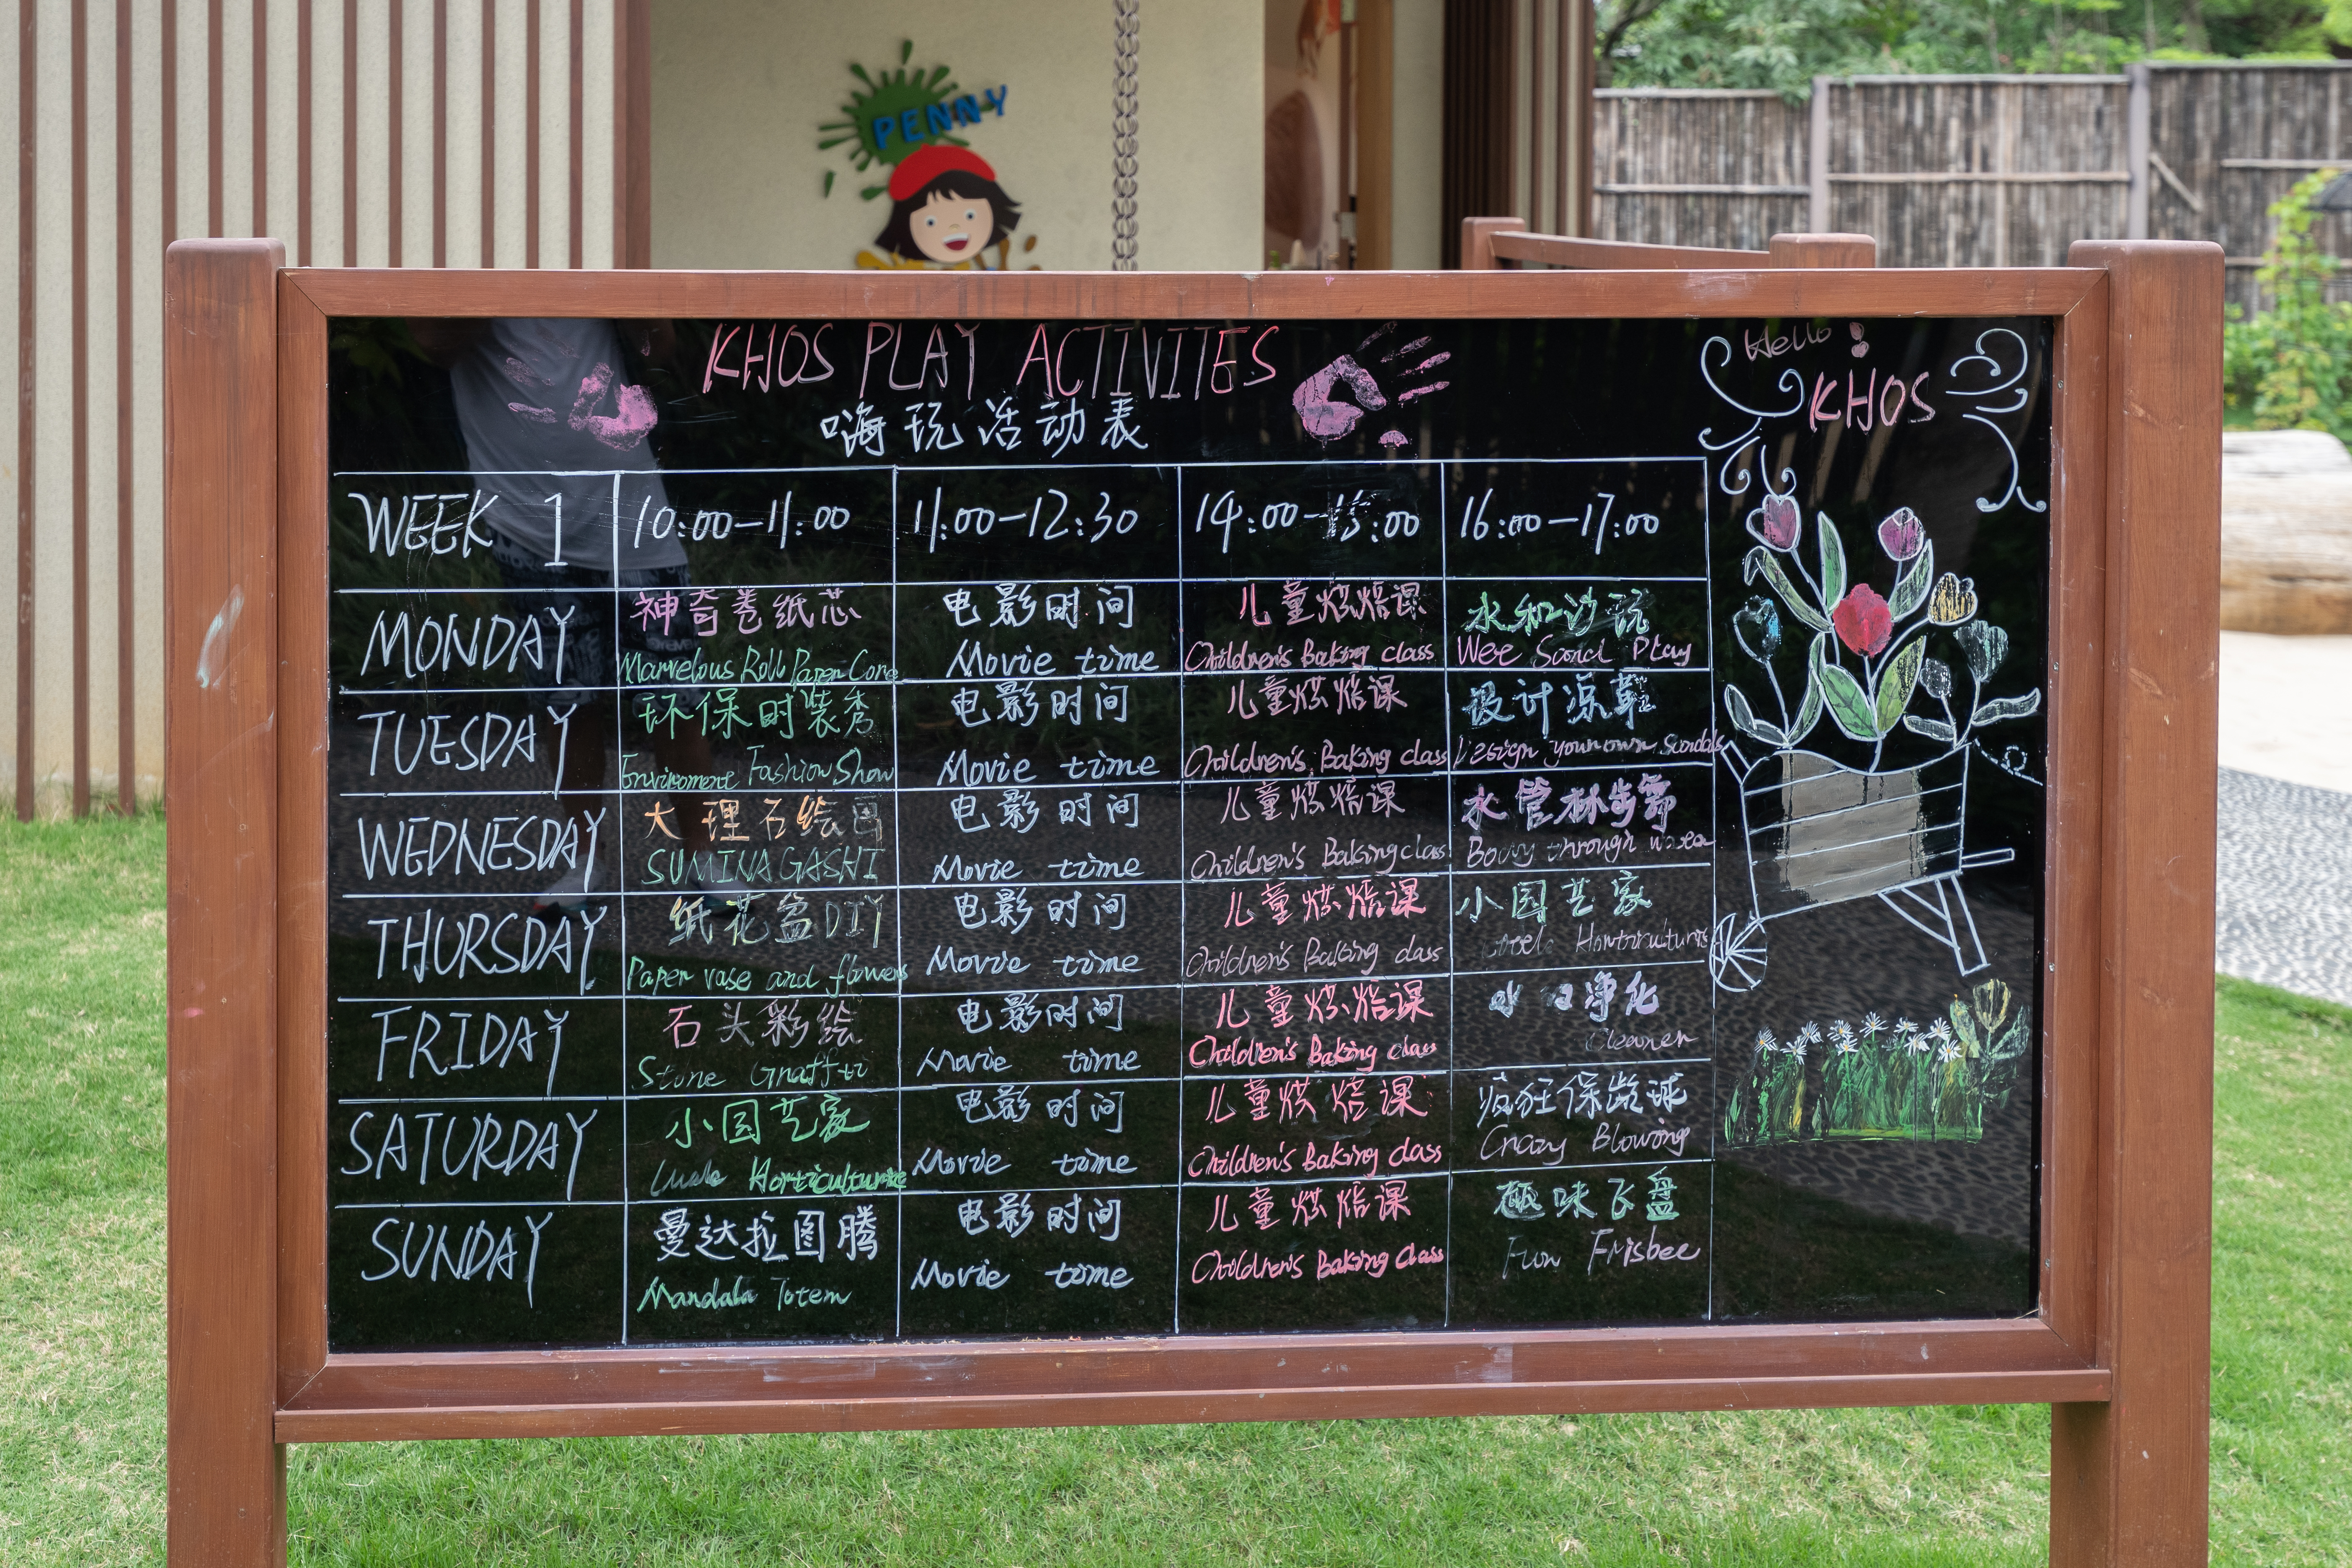 PENNY
KHOS PLAY ACTIVITES
嗨玩活动表
Hello
KHOS
WEEK 1 10:00-11:00 11:00-12:30 14:00-15:00 16:00-17:00
MONDAY 神奇卷纸芯 电影时间 儿童烘焙课 水和沙玩
Marvelous Roll Paper Core Movie time Children's Baking class Wee Sand Play
TUESDAY 环保时装秀 电影时间 儿童烘焙课 设计凉鞋
Enviroment Fashion Show Movie time Children's Baking class Design your own sandals
WEDNESDAY 大理石绘图 电影时间 儿童烘焙课 水管
SUMINAGASHI Movie time Children's Baking class through
THURSDAY 纸花盆DIY 电影时间 儿童烘焙课 小园艺家
Paper vase and flowers Movie time Children's Baking class Horticulturis
FRIDAY 石头彩绘 电影时间 儿童烘焙课 净化
Stone Graffti Movie time Children's Baking class Cleaner
SATURDAY 小园艺家 电影时间 儿童烘焙课 疯狂保龄球
Horticulturis Movie time Children's Baking class Crazy Blowing
SUNDAY 曼达拉图腾 电影时间 儿童烘焙课 趣味飞盘
Mandala Totem Movie time Children's Baking class Fun Frisbee